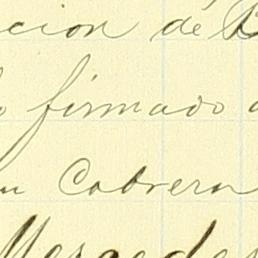 cion de
firmado
Cabrera
Mercedes